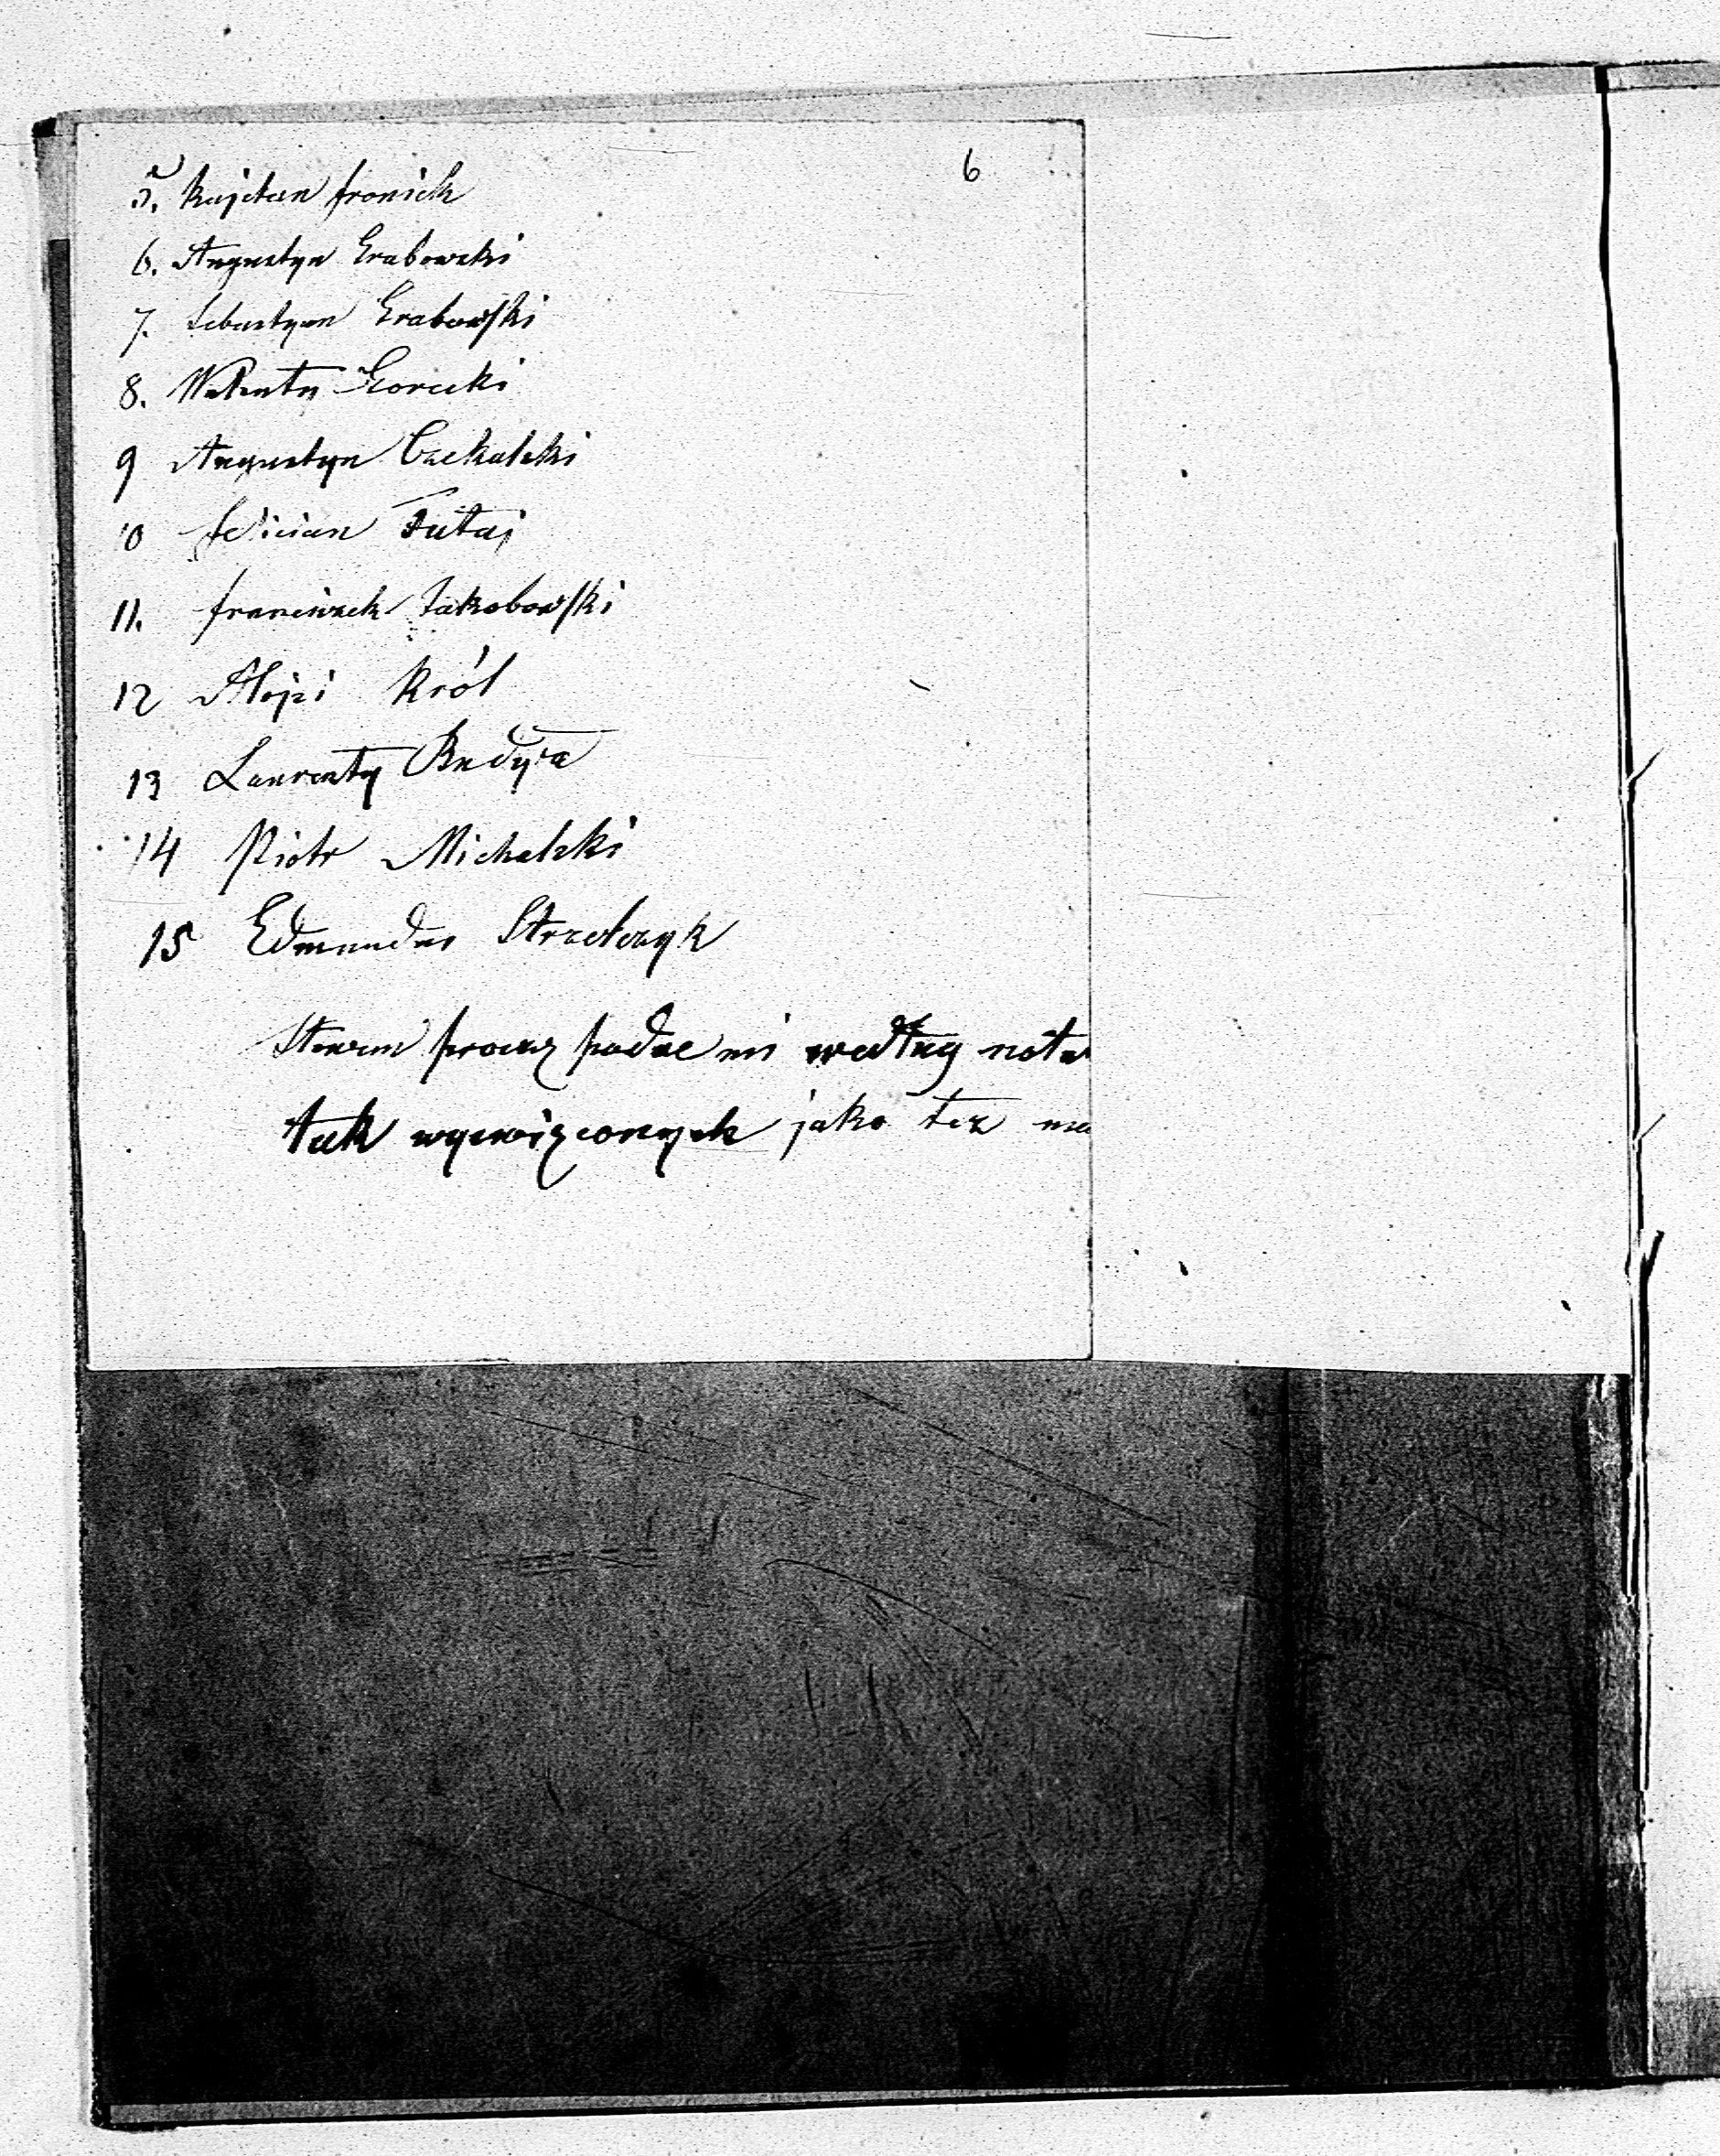 6
5. Kajetan Fronick
6. Augustyn Grabowski
7. Sebastyan Grabowski
8. Walenty Gorecki
9 Augustyn Czekalski
10 Felician Futaj
11. Franciszek Jakobowski
12 Alojzi Król
13 Laurenty
14 Piotr Michalski
15 Edmundus Strzelczyk
proszę podać mi według nota
tak wyświęconych jako też